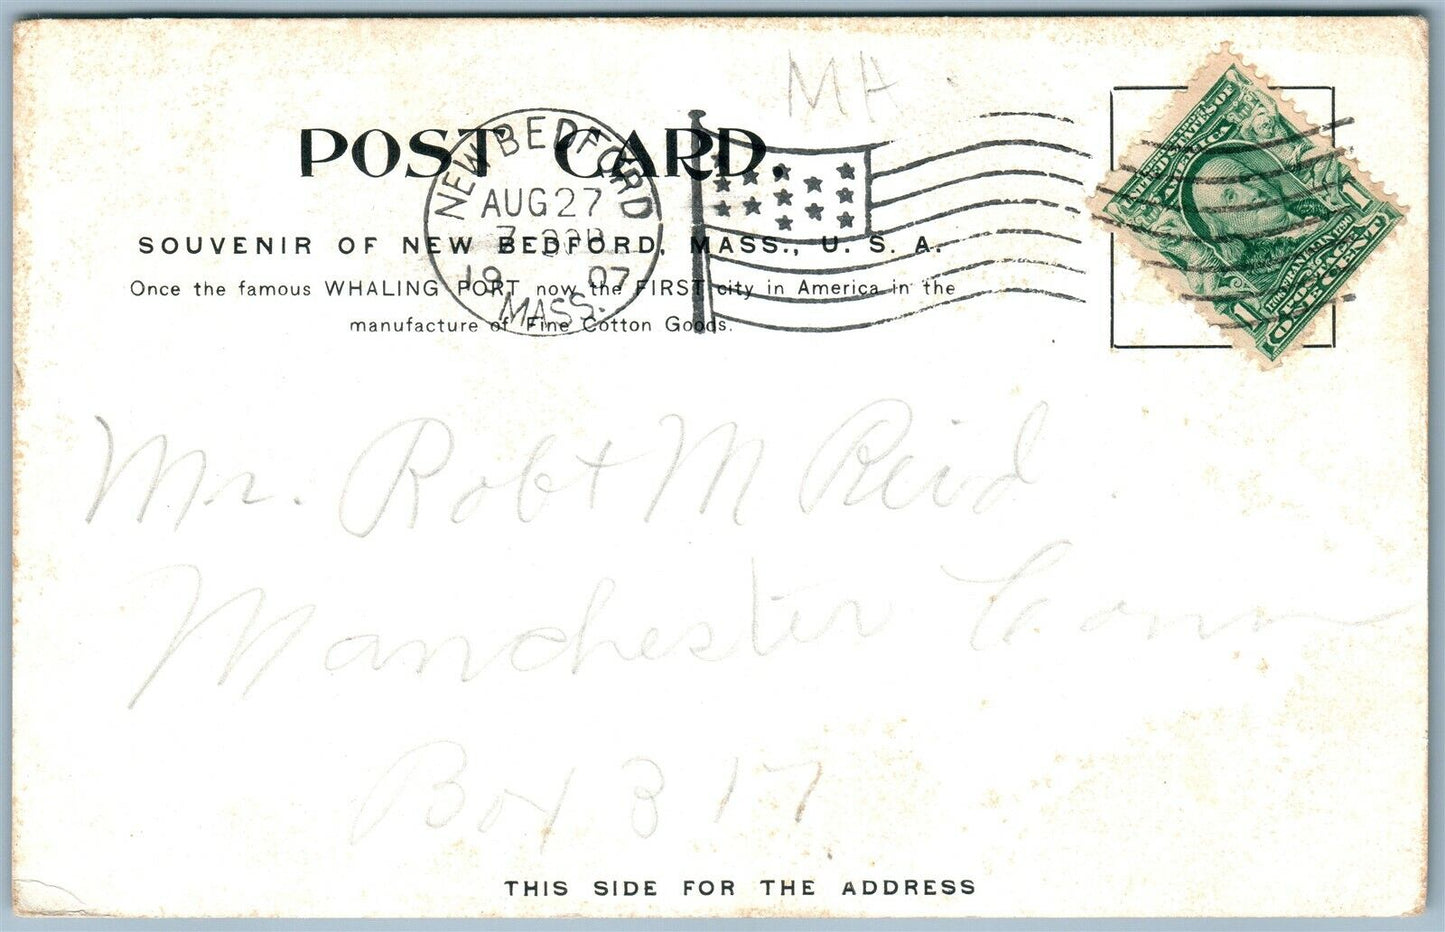 MA
POST CARD.
NEW BEDFORD
AUG 27
19 07
MASS.
SOUVENIR OF NEW BEDFORD, MASS., U. S. A.
Once the famous WHALING PORT now the FIRST city in America in the
manufacture of Fine Cotton Goods.
UNITED STATES OF
AMERICA
FRANKLIN
ONE CENT
1 1
Mr. Robt M Reid
Manchester Conn
Box 317
THIS SIDE FOR THE ADDRESS